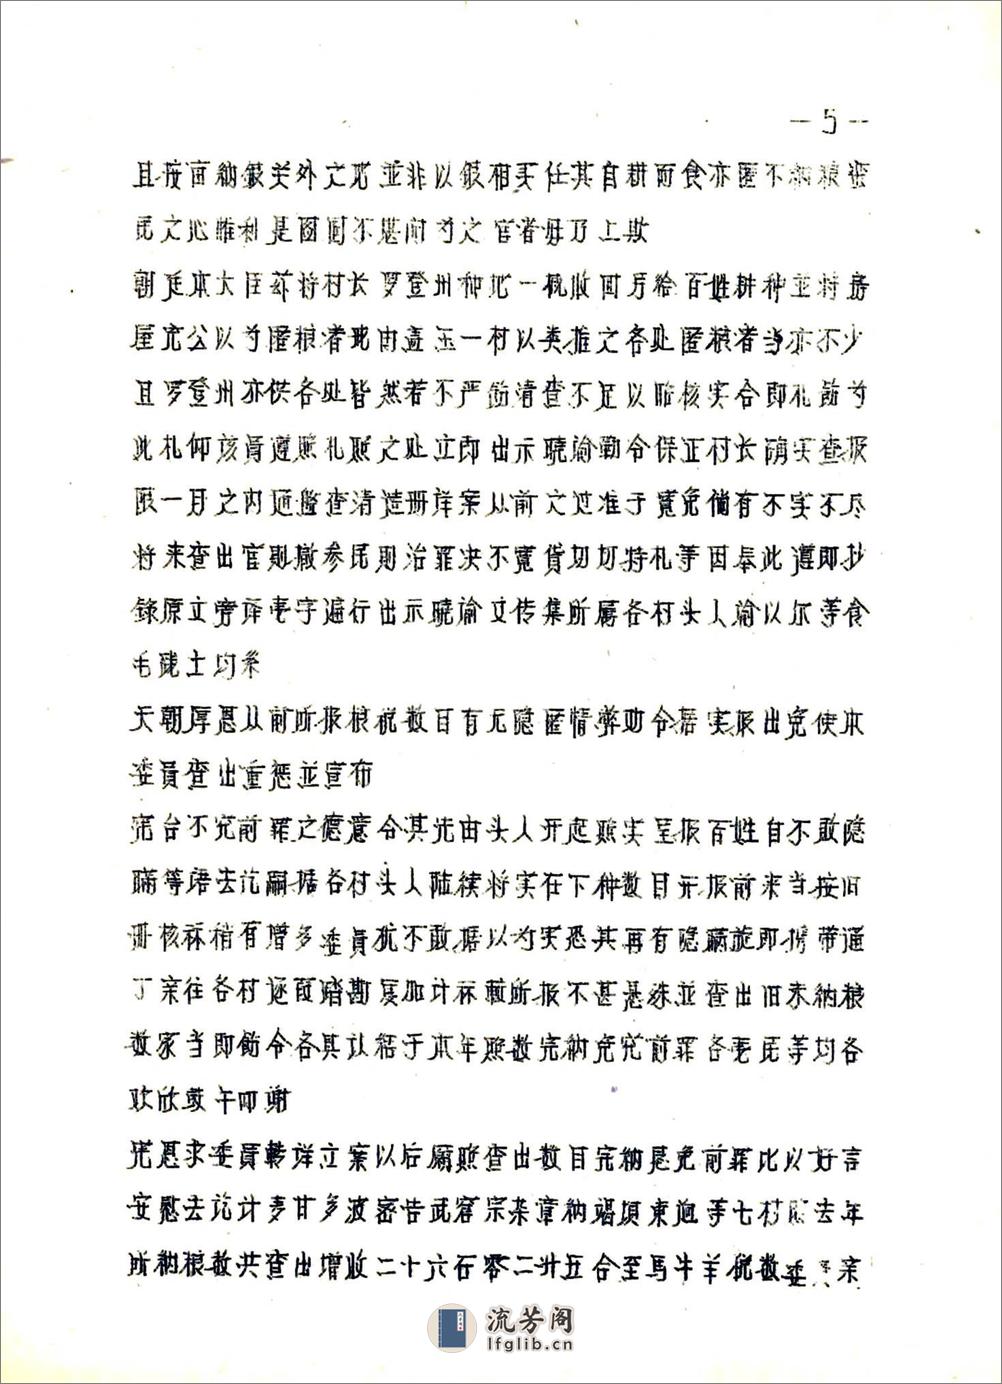 —5—
且按亩纳银关外之地並非以银相买任其自耕而食亦匿不纳粮蛮
民之心唯利是图罔不思耐为之官者毋乃上欺
朝廷本大臣亦将村长罗登州种地一概收回另给百姓耕种並将房
屋充公以为匿粮者戒由盖玉一村以类推之各处匿粮者当亦不少
且罗登州亦供各处皆然若不严饬清查不足以昭核实合即札饬为
此札仰该员遵照札照之处立即出示晓谕勒令保正村长确实查报
限一月之内通盘查清造册详案从前之过准于宽免倘有不实不尽
将来查出官则撤参民则治罪决不宽贷切切特札等因奉此遵即抄
録原文旁译老字遍行出示晓谕又传集所属各村头人谕以尔等食
毛践土均系
天朝厚恩从前所报粮税数目有无隐匿情弊勒令据实报出免使本
委员查出重惩並宣布
宪台不究前罪之德意令其先由头人开赴照实呈报百姓自不敢隐
瞒等语去讫嗣据各村头人陆续将实在下种数目开报前来当按旧
册核稍有增多委員犹不敢据以为实恐其再有隐瞒旋即携带通
丁亲往各村逐段踏勘复加计所报不甚悬殊並查出旧未纳粮
数家当即饬令各具认结于本年照数完纳免究前罪各老民等均各
欢欣鼓午叩谢
宪恩求委员转详立案以后愿照查出数目完纳恳免前罪比以好言
安慰去讫计麦甘多波密告武容宗杂章纳竭项東迥等七村照去年
所纳粮数共查出增收二十六石零二升五合至馬牛羊税数委員亲
流芳阁
lfglib.cn